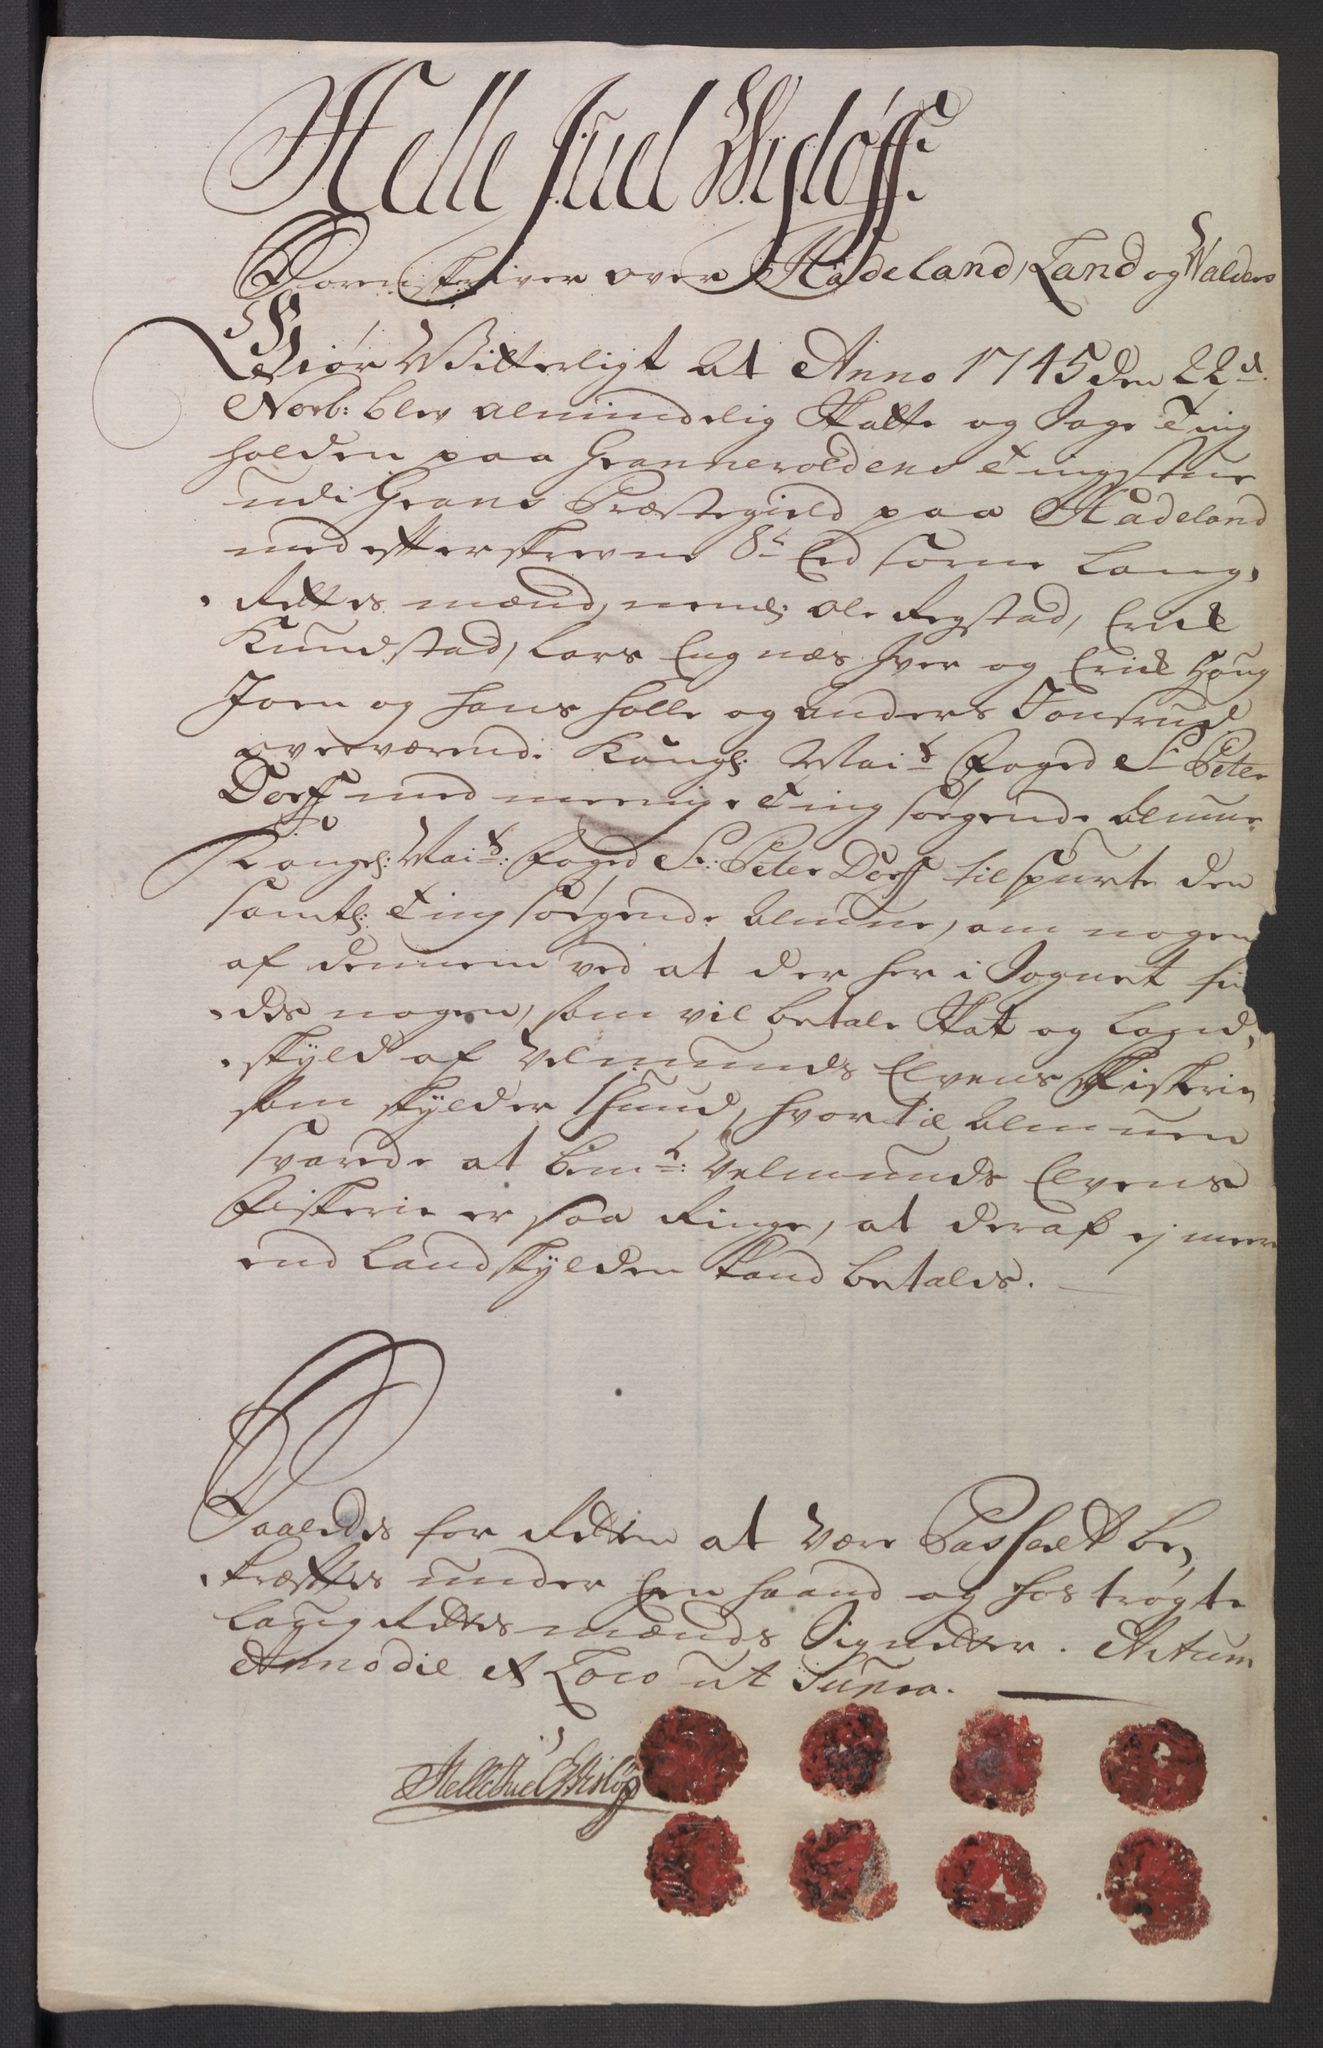 Helle Juel Wisløff.
Sorenskriver over Hadeland, Land og Walders
Giør Witterligt at Anno 1745 den 22de
Novb: blev almindelig Skatte og Sage Ting
holden paa Grannevoldens Tingstue
udi Grans Præstegield paa Hadeland
med efterskrevne 8te Eed sorne Laug,
Rettes mænd, neml: Ole Regstad, Erich
Kundstad, Lars Engnæs Iver og Erich Houg
Joen og Hans Holle og Anders Jonsrud
overværende Kongl: Mai:ts Foged Sr Peter
Dorff med meenige Ting søgende Almue
Kongl: Mai:ts: Foged Sr: Peter Dorff tilspurte den
samtl: Ting søgende Almue, om nogen
af dennem ved at der her i Sognet fin
des nogen, som vil betale Skat og Land,
skyld af Velmunds Elvens Fiskerie
som skylder 1 Hud, hvortil Almuen
svarede at bem:te: Velmunds Elvens
Fiskerie er saa Ringe, at deraf ej meere
end Landskylden kand betales.
Saaledes for Retten at være Passeret be,
kræftes under Hen haand og hos trøgte
Laug Rettes mænds Signetter. Actum
Anno die et Loco ut Supra.
Helle Juel Wisløff